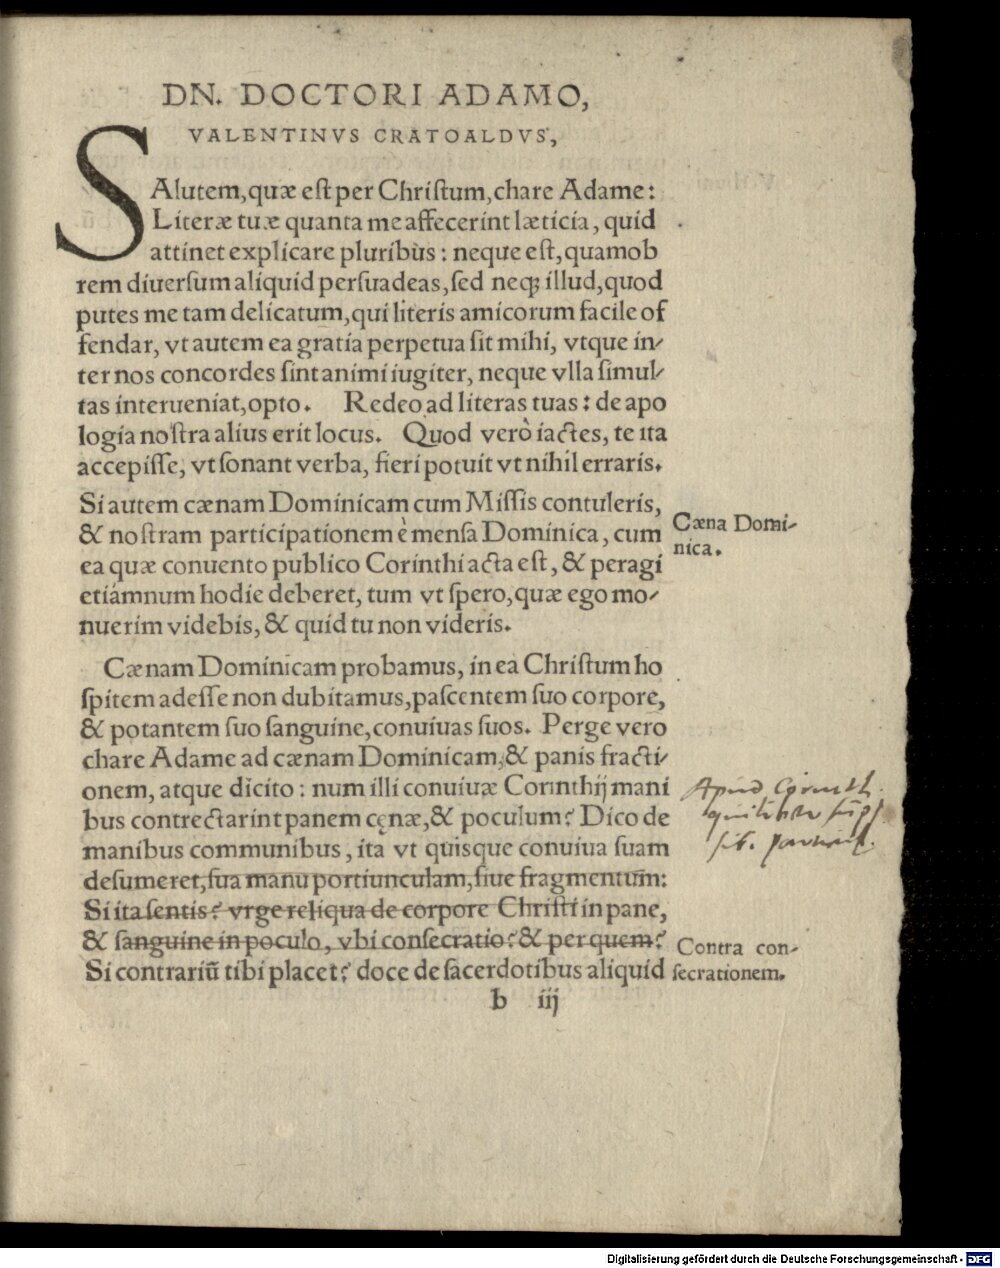 DN. DOCTORI ADAMO,
VALENTINVS CRATOALDVS,
SAlutem, quæ est per Christum, chare Adame:
Literæ tuæ quanta me affecerint læticia, quid
attinet explicare pluribùs: neque est, quamob
rem diuersum aliquid persuadeas, sed neq; illud, quod
putes me tam delicatum, qui literis amicorum facile of
fendar, vt autem ea gratia perpetua sit mihi, vtque in-
ter nos concordes sint animi iugiter, neque vlla simul-
tas interueniat, opto. Redeo ad literas tuas: de apo
logia nostra alius erit locus. Quod verò iactes, te ita
accepisse, vt sonant verba, fieri potuit vt nihil erraris.
Si autem cænam Dominicam cum Missis contuleris,
& nostram participationem è mensa Dominica, cum
ea quæ conuento publico Corinthi acta est, & peragi
etiámnum hodie deberet, tum vt spero, quæ ego mo-
nuerim videbis, & quid tu non videris.
Cæna Domi-
nica.
Cænam Dominicam probamus, in ea Christum ho
spitem adesse non dubitamus, pascentem suo corpore,
& potantem suo sanguine, conuiuas suos. Perge vero
chare Adame ad cænam Dominicam, & panis fracti-
onem, atque dicito: num illi conuiuæ Corinthij mani
bus contrectarint panem cęnæ, & poculum? Dico de
manibus communibus, ita vt quisque conuiua suam
desumeret, sua manu portiunculam, siue fragmentum:
Si ita sentis? vrge reliqua de corpore Christi in pane,
& sanguine in poculo, vbi consecratio? & per quem?
Si contrariū tibi placet? doce de sacerdotibus aliquid
Apud Corinth.
Contra con-
secrationem.
b iij
Digitalisierung gefördert durch die Deutsche Forschungsgemeinschaft - DFG